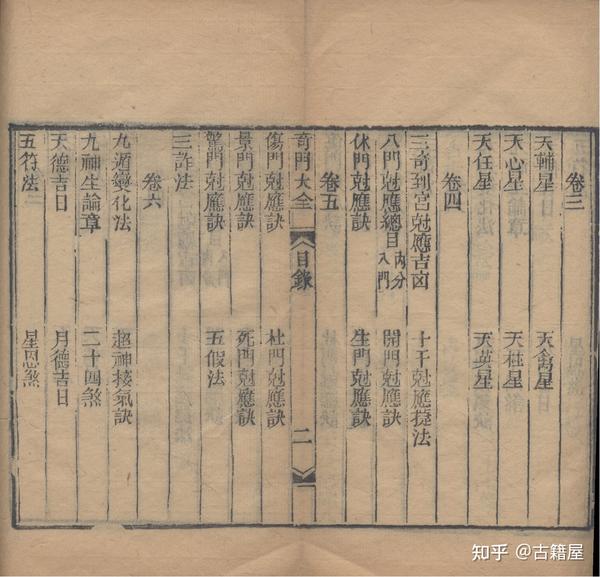 卷三
天輔星 天禽星
天心星 天柱星
天任星 天英星
卷四
三奇到宮尅應吉凶 十干尅應㨗法
八門尅應總目 内分八門 開門尅應訣
休門尅應訣 生門尅應訣
卷五
奇門大全 目錄 二
傷門尅應訣 杜門尅應訣
景門尅應訣 死門尅應訣
驚門尅應訣 五假法
三詐法
卷六
九遁變化法 超神接氣訣
九神生論章 二十四煞
天德吉日 月德吉日
五符法 星恩煞
知乎 @古籍屋